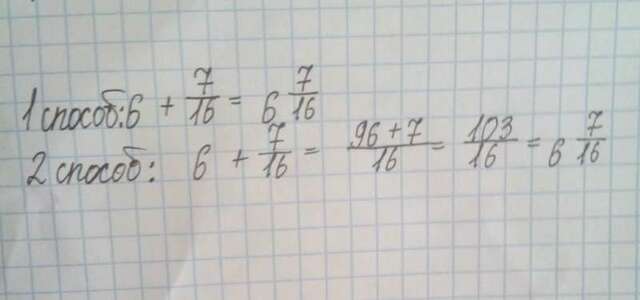 1 способ: 6 + 7/16 = 6 7/16
2 способ: 6 + 7/16 = 96+7/16 = 103/16 = 6 7/16